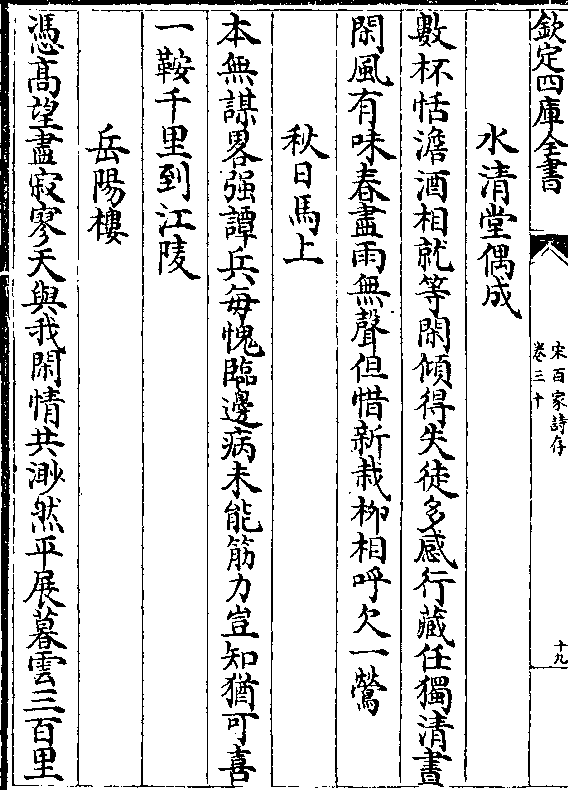 欽定四庫全書
宋百家詩存
卷三十
十九
水清堂偶成
數杯恬澹酒相就等閑傾得失徒多感行藏任獨清晝
閑風有味春盡雨無聲但惜新栽柳相呼欠一鶯
秋日馬上
本無謀畧强譚兵每愧臨邊病未能筋力豈知猶可喜
一鞍千里到江陵
岳陽樓
憑髙望盡寂寥天與我閑情共渺然平展暮雲三百里